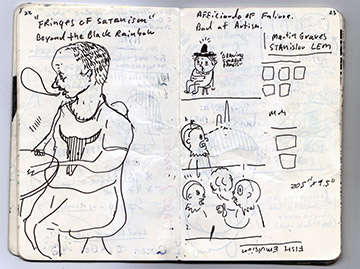 22
"Fringes of Satanism"
Beyond the Black Rainbow
23
Afficionado of Failure.
Bad at Autism.
Martin Graves
Stanislov LEM
DRAWING
20.5" x 9.5"
FISH Emulsion